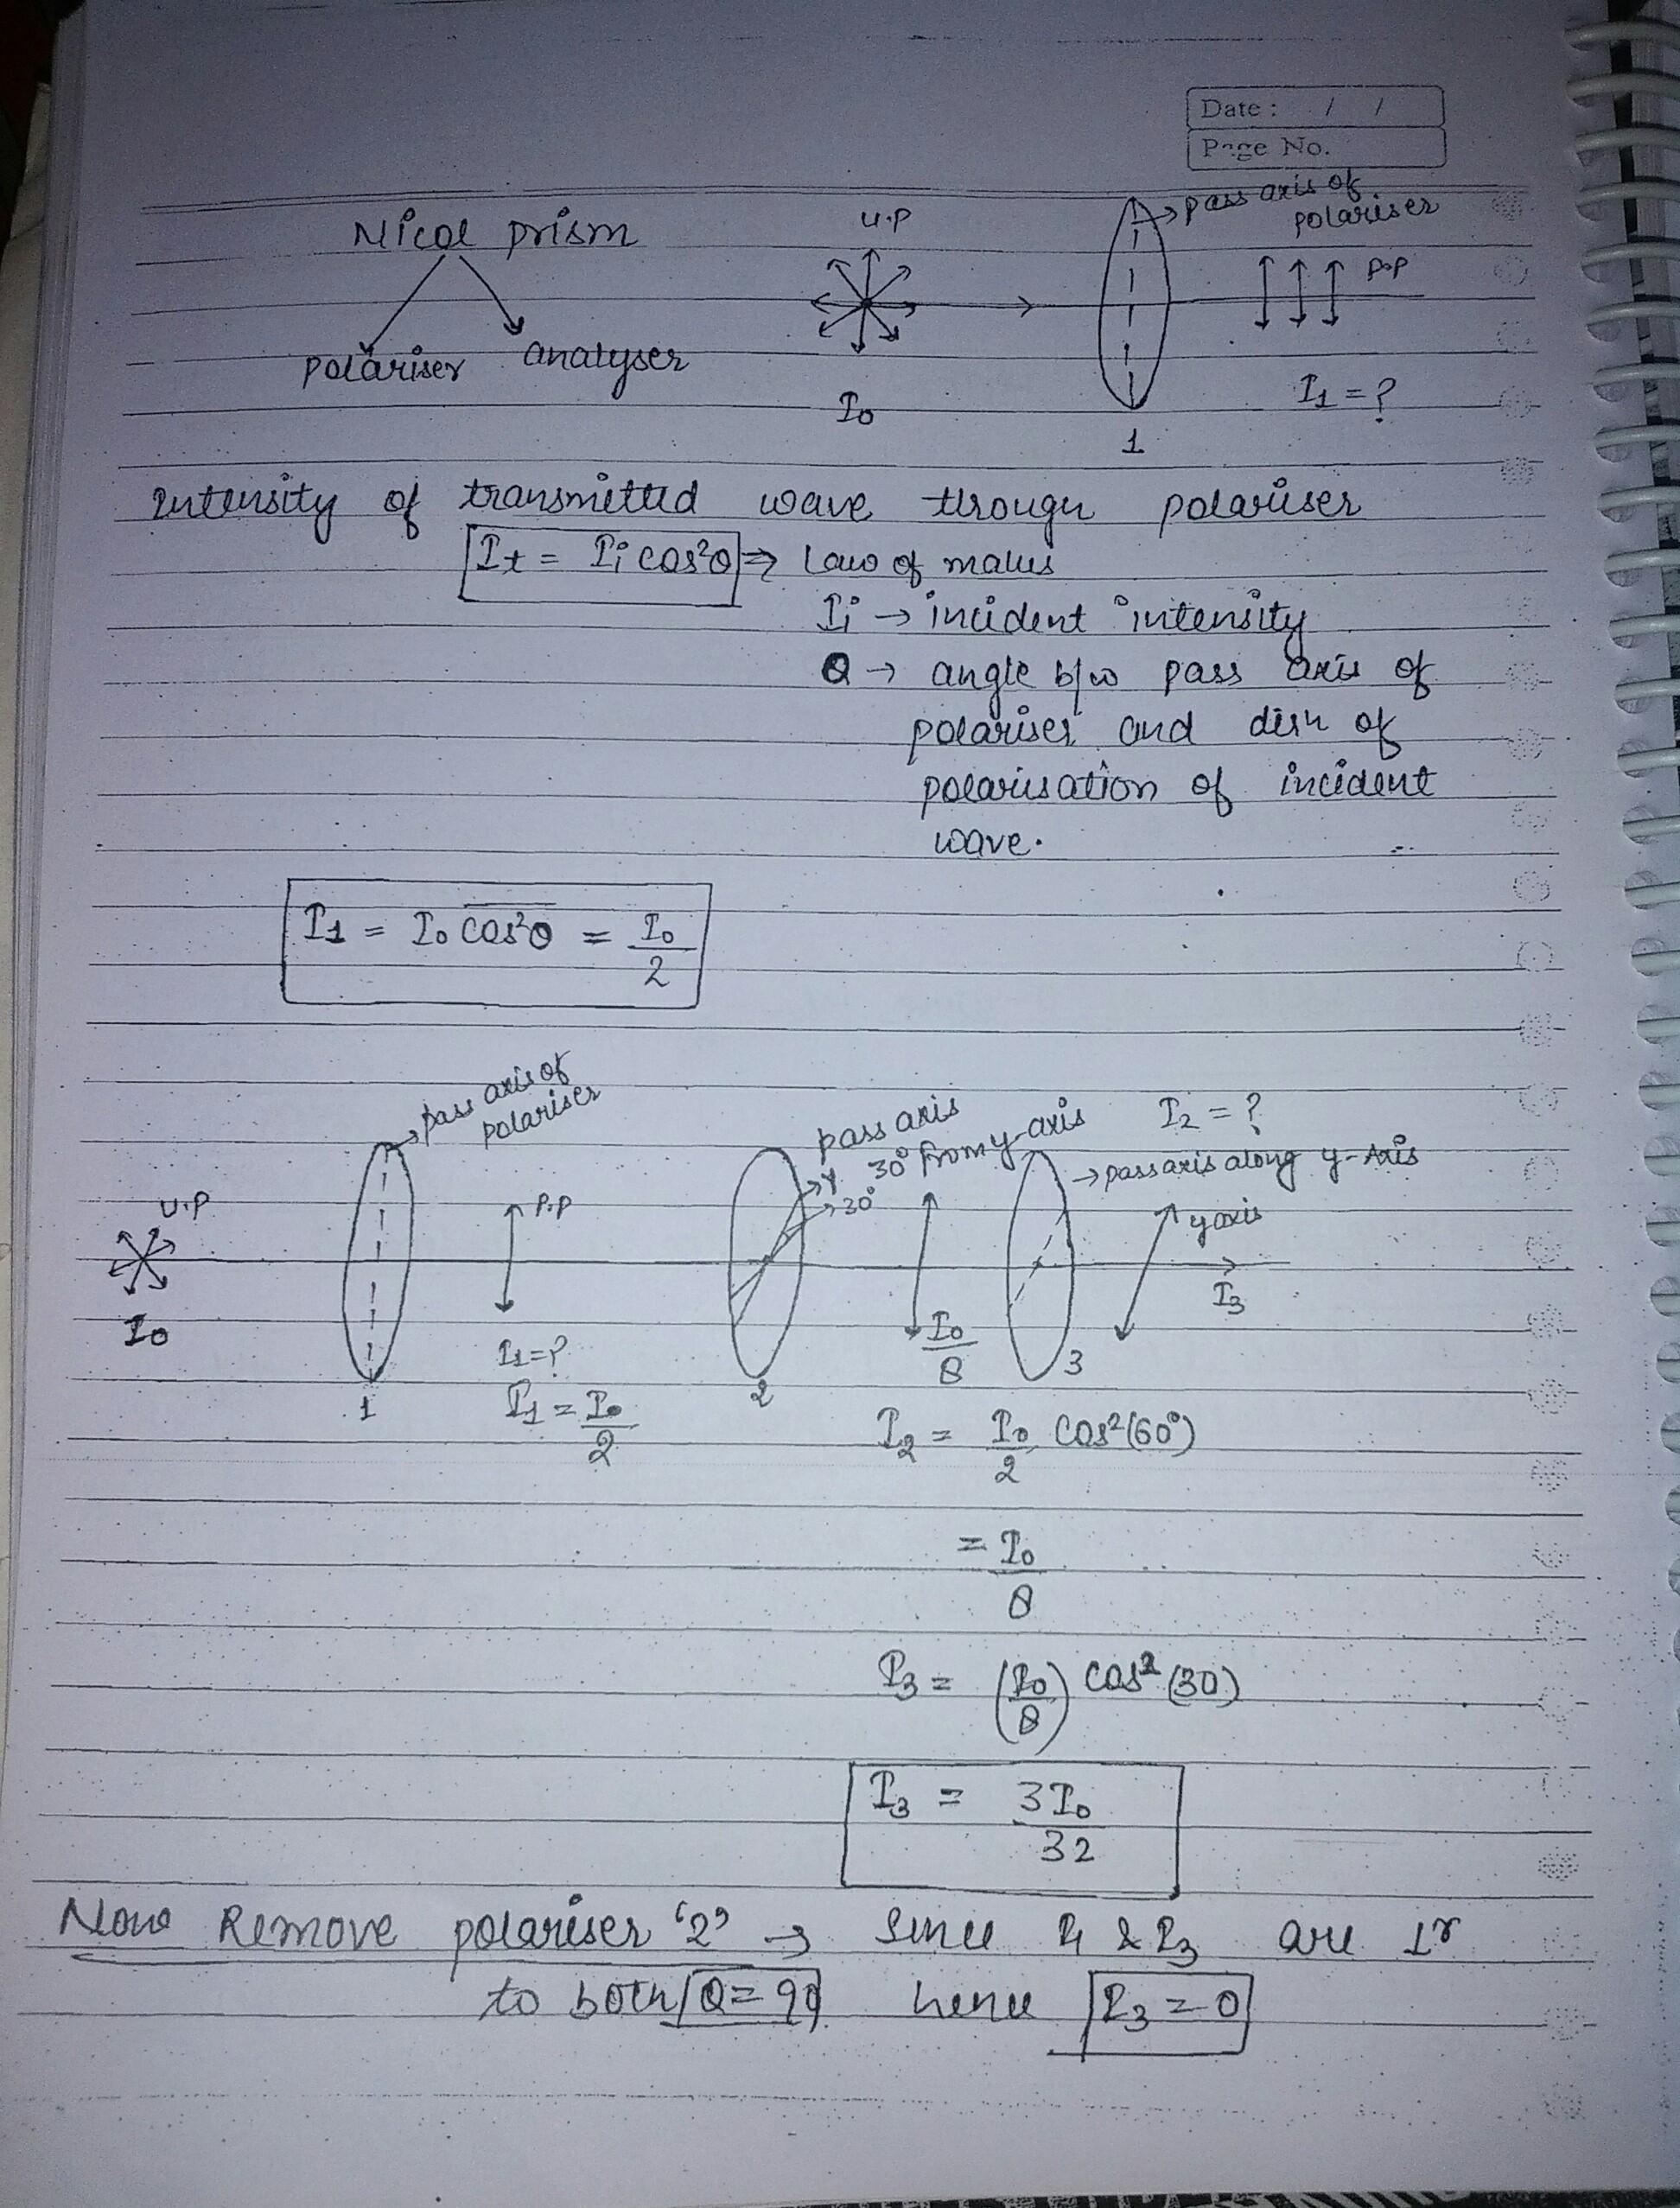 Date : / /
Page No.
Nicol prism
polariser analyser
U.P
I₀
pass axis of
polariser
P.P
I₁ = ?
1
Intensity of transmitted wave through polariser
Iₜ = Iᵢ cos²θ ⇒ Law of malus
Iᵢ → incident intensity
θ → angle b/w pass axis of
polariser and dirⁿ of
polarisation of incident
wave.
I₁ = I₀ cos²θ = I₀/2
pass axis of
polariser
U.P
I₀
1
P.P
I₁ = ?
I₁ = I₀/2
pass axis
30° from y-axis
Y
30°
2
I₀/8
I₂ = ?
→ pass axis along y-Axis
y axis
I₃
3
I₂ = I₀/2 cos²(60°)
= I₀/8
I₃ = (I₀/8) cos²(30)
I₃ = 3I₀/32
Now Remove polariser '2' → Since P₁ & P₃ are ⊥ʳ
to both θ = 90 hence I₃ = 0